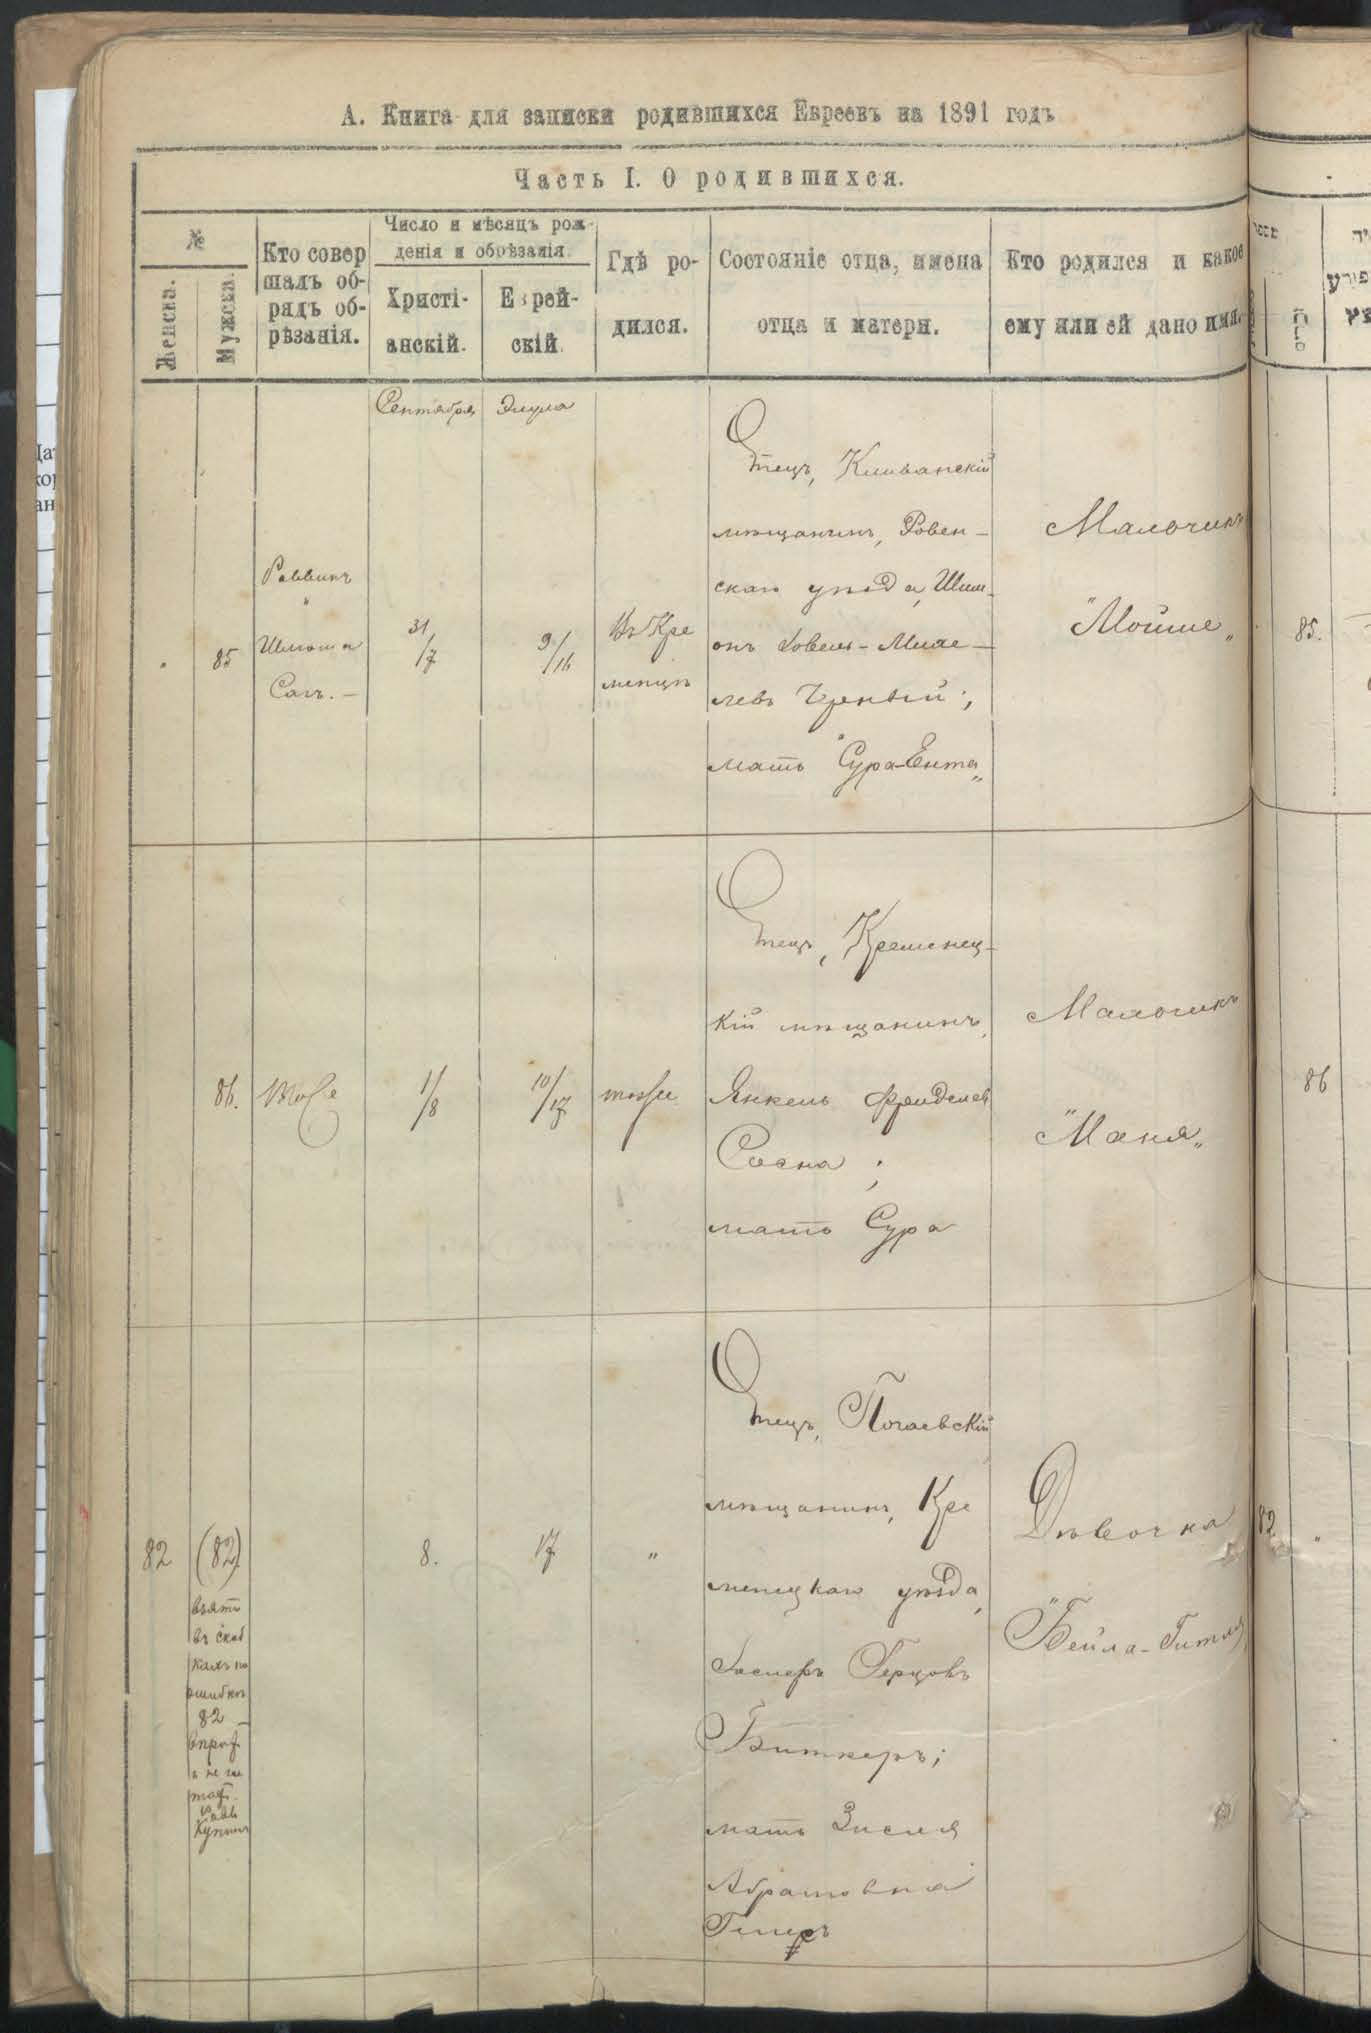 А. Книга для записки родившихся Евреевъ на 1891 годъ
Часть I. О родившихся.
№
Женска.
Мужска.
Кто совер
шалъ об-
рядъ об-
рѣзанія.
Число и мѣсяцъ рож-
денія и обрѣзанія.
Христі-
анскій.
Еврей-
скій.
Гдѣ ро-
дился.
Состояніе отца, имена
отца и матери.
Кто родился и какое
ему или ей дано имя.
Сентября
Элула
85
Раввинъ
Шлиома
Сагъ. —
31/7
9/16
Въ Кре
менцѣ
Отецъ, Клеванскій
мѣщанинъ, Ровен-
скаго уѣзда, Шим-
онъ
левъ Черный;
мать "Сура-Ента"
Мальчикъ
"Мойше"
85.
86.
тоже
1/8
10/17
тоже
Отецъ, Кременец-
кій мѣщанинъ,
Янкель Фрейделев
Сосна;
мать Сура
Мальчикъ
"Маня"
86
82
(82)
взято
въ скоб
кахъ по
ошибкѣ
82 —
8.
17
"
Отецъ, Почаевскій
мѣщанинъ, Кре
менецкаго уѣзда,
Герцовъ
Биткеръ;
мать Зисля
Абрамовна
Дѣвочка
"Бейла-Гитля"
82
"